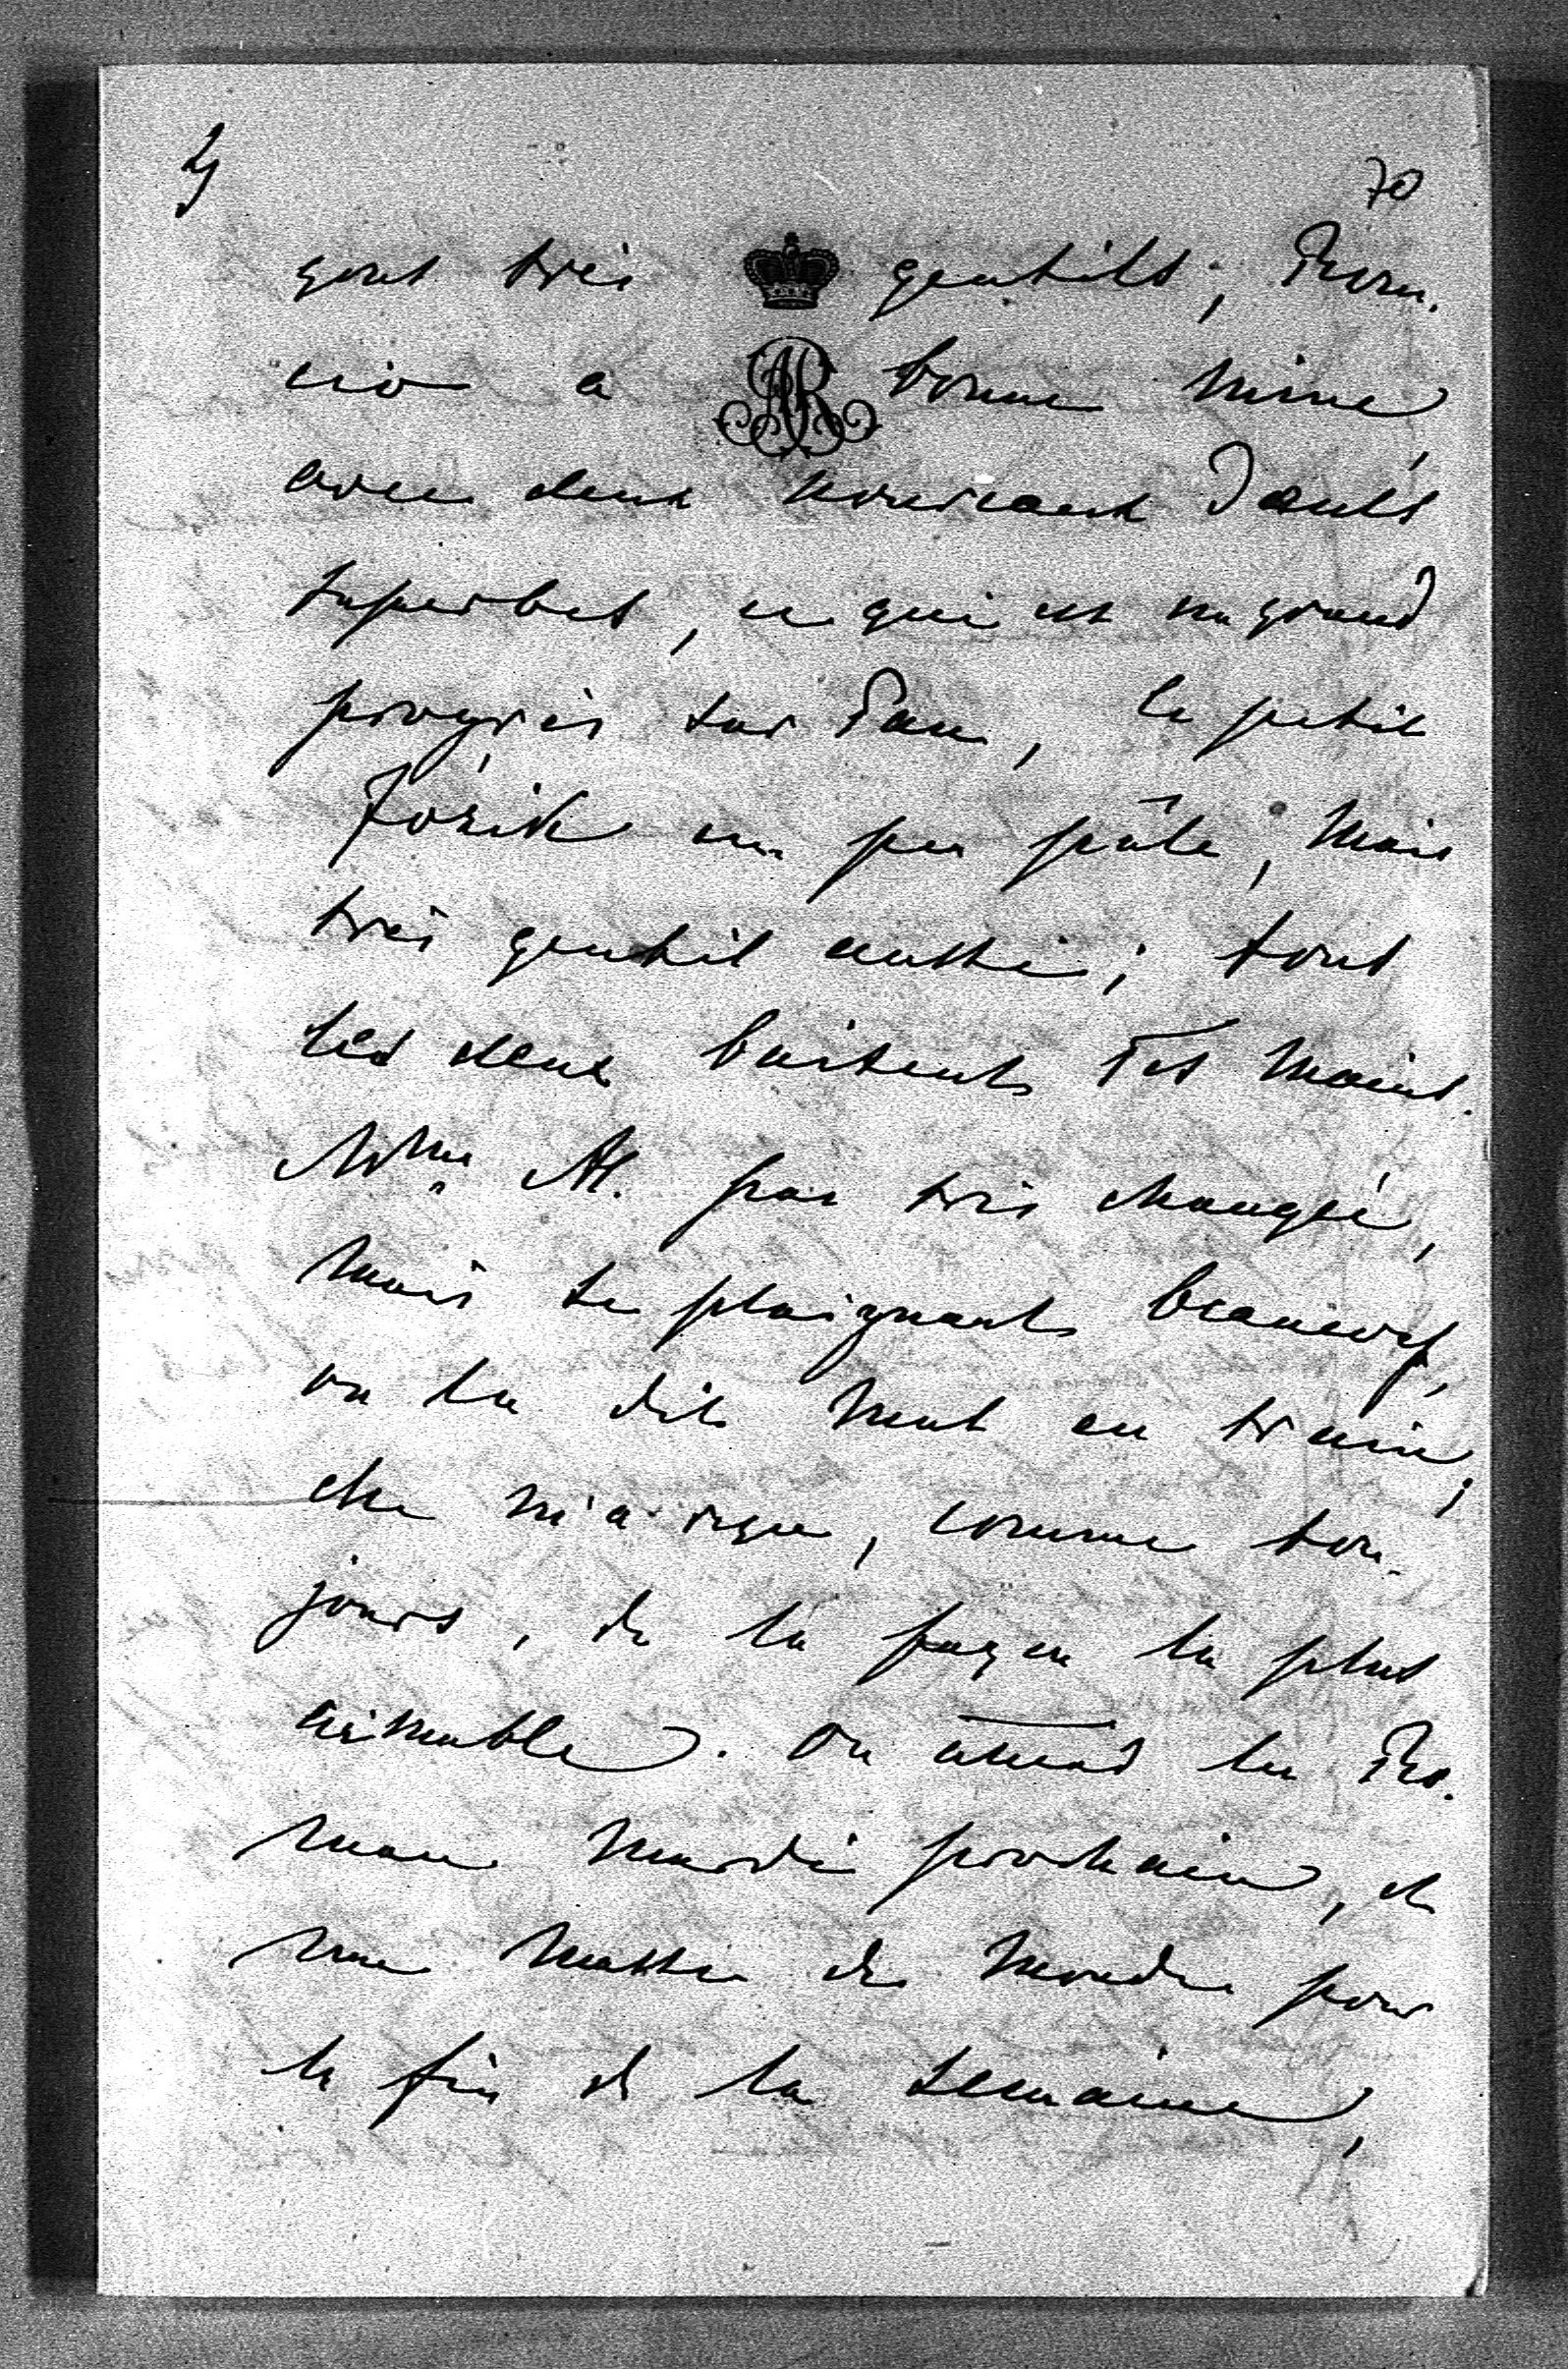 4
70
sont très gentils, Rom-
cio a bonne mine,
AR
avec deux nouveaux dents
superbes, ce qui est un grand
progrès sur Pau, le petit
Józik un peu pâle, mais
très gentil aussi; tous
les deux baisent tes mains.
Mme A. pas très changée,
mais se plaignant beaucoup,
on la dit mal en train;
elle m'a reçu, comme tou-
jours, de la façon la plus
aimable. On attend la Ro-
mane mardi prochain, et
une masse de monde pour
la fin de la semaine,